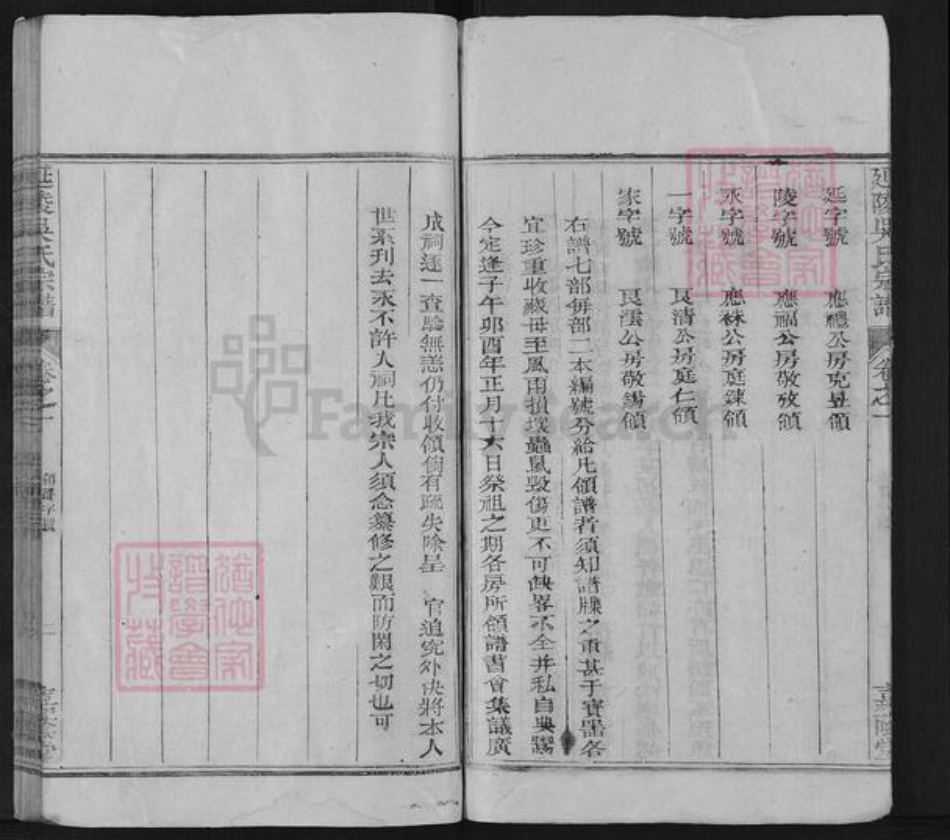 延陵吳氏宗譜 卷之一
延字號 應禮公房克昱領
陵字號 應福公房敬攷領
永字號 應秝公房庭鍊領
一字號 良清公房庭仁領
家字號 良澐公房敬錫領
右譜七部每部二本編號分給凡領譜者須知譜牒之重甚于寶器各
宜珍重收藏毋至風雨損壞蟲鼠毀傷更不可缺畧不全并私自典鬻
今定逢子午卯酉年正月十六日祭祖之期各房所領譜書會集議廣
成祠逐一查驗無恙仍付收領倘有疏失除呈 官追究外决將本人
世系刊去永不許人祠凡我宗人須念纂修之艱而防閑之切也可
延陵吳氏宗譜 卷之一 領譜字號 二
譜學會
收藏
FamilySearch